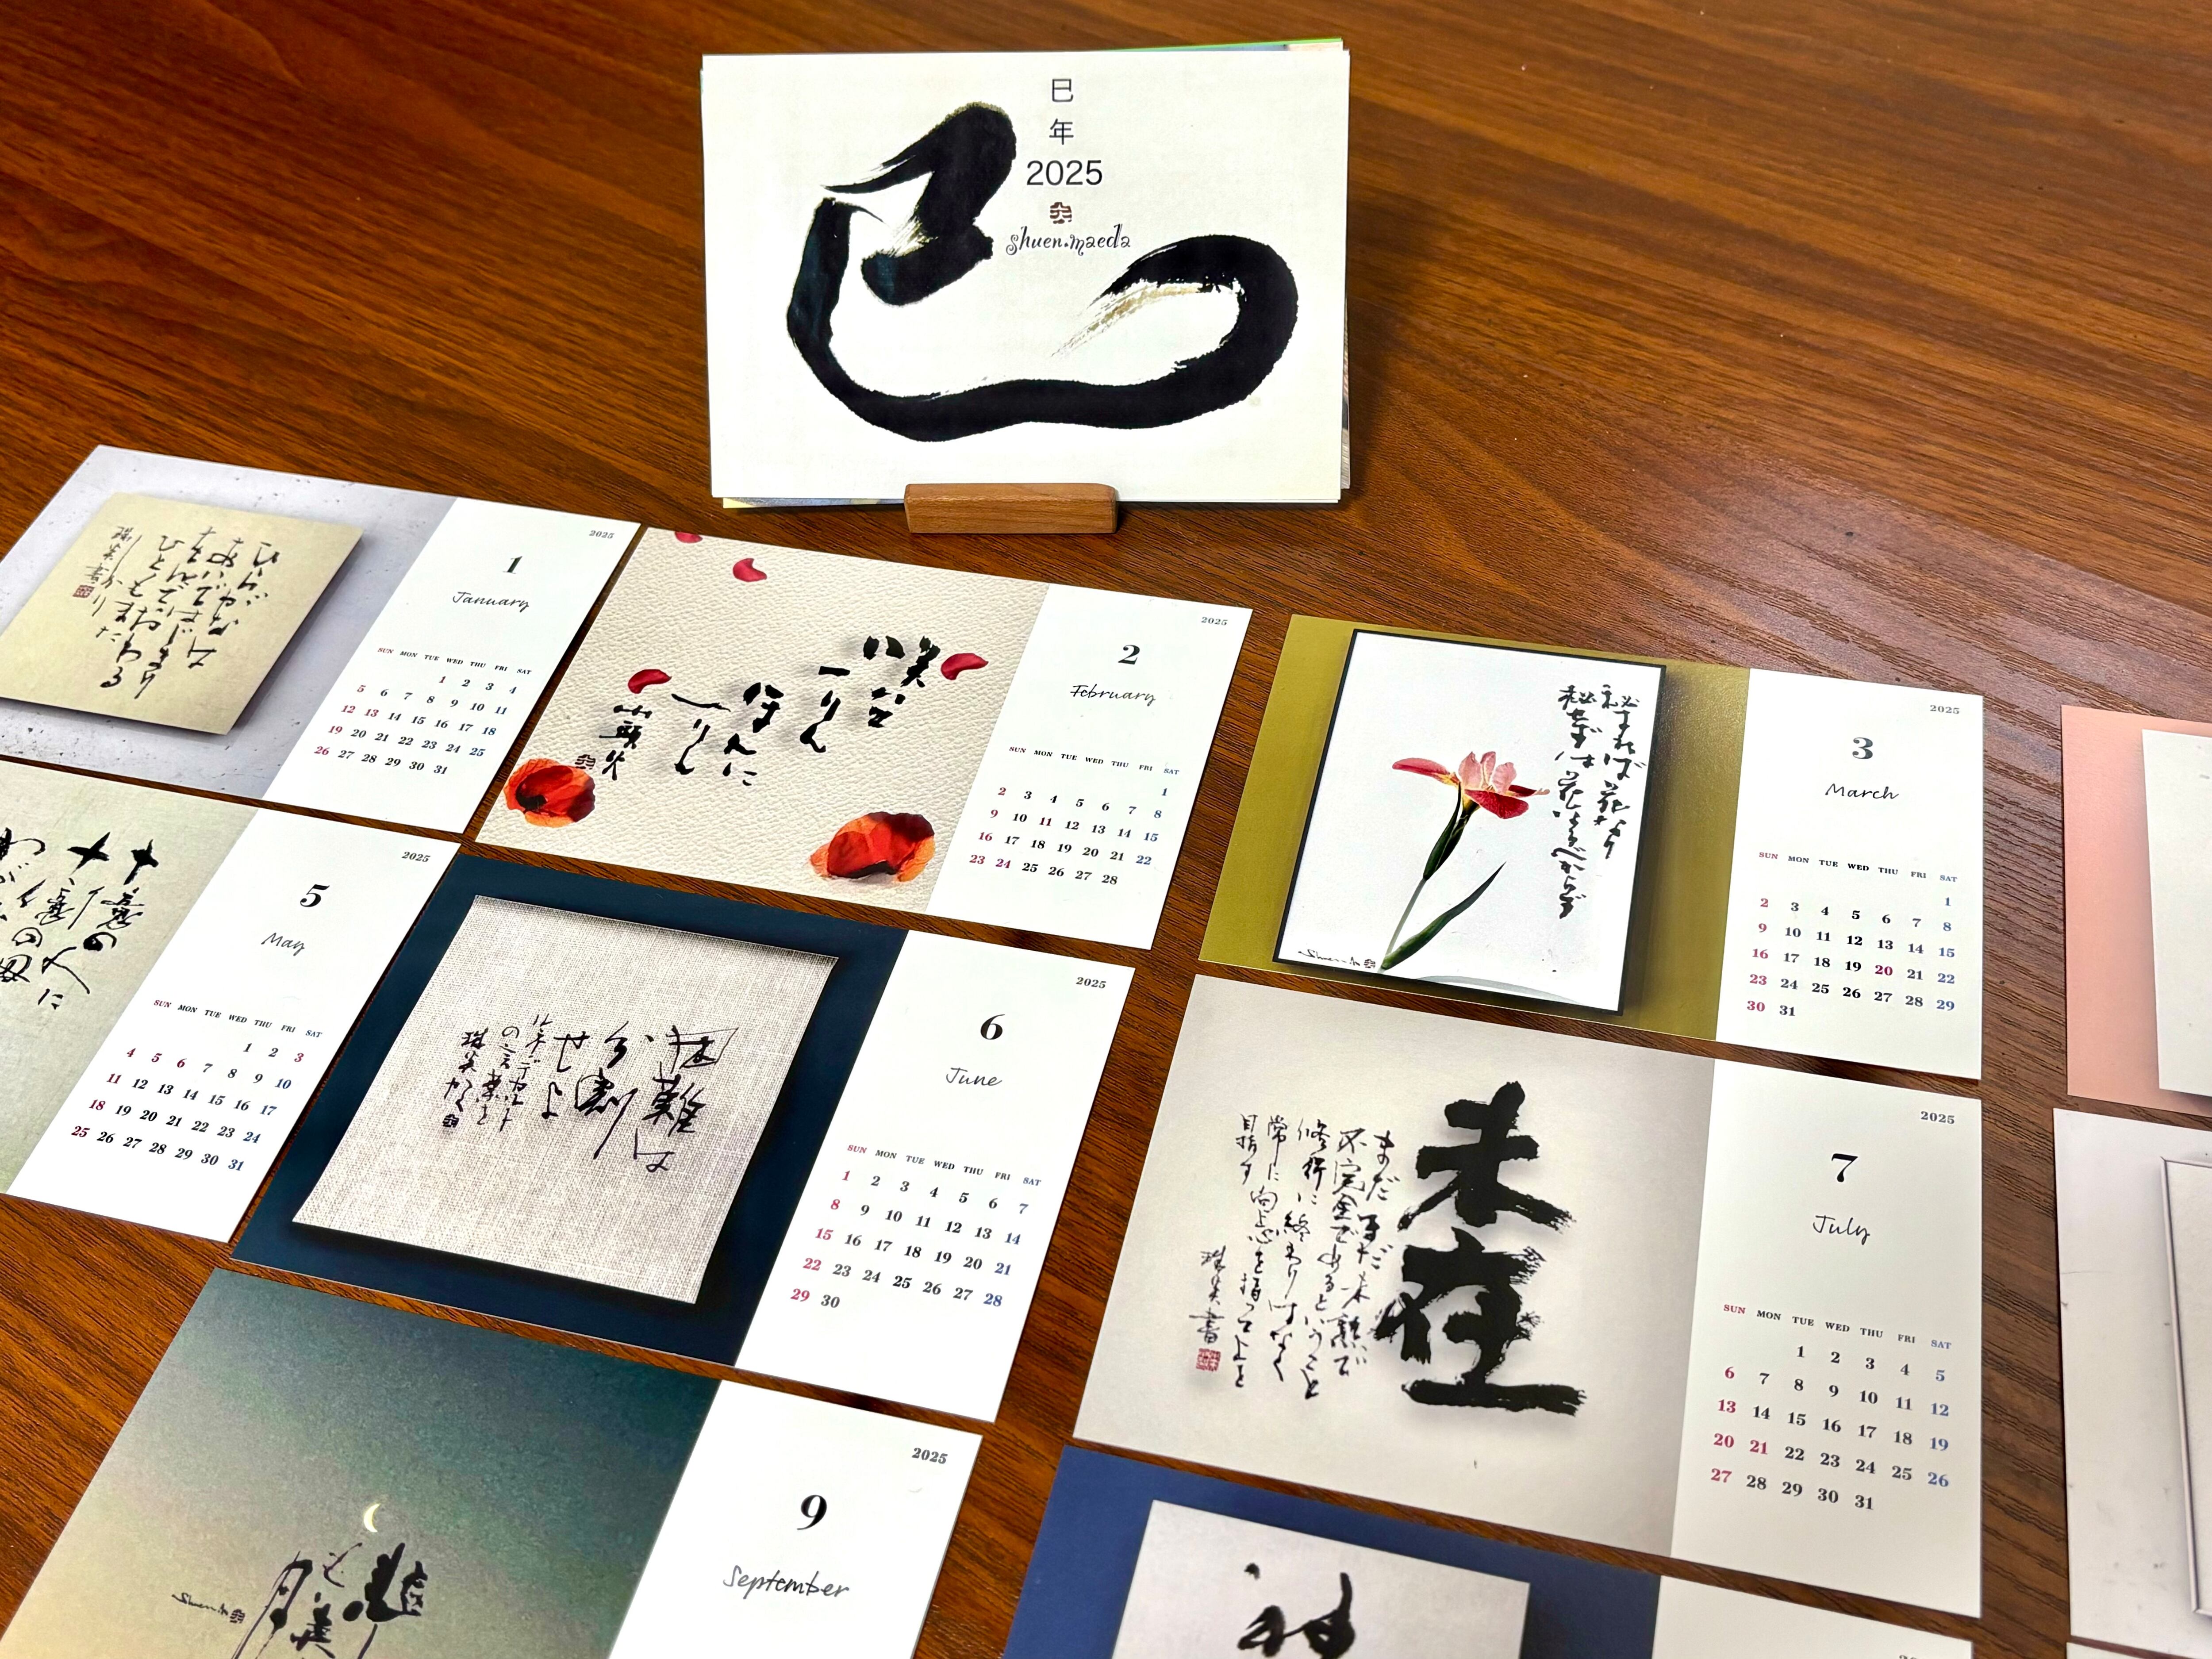 巳
年
2025
shuen.maeda
2025
1
January
SUN MON TUE WED THU FRI SAT
1 2 3 4
5 6 7 8 9 10 11
12 13 14 15 16 17 18
19 20 21 22 23 24 25
26 27 28 29 30 31
2025
2
February
SUN MON TUE WED THU FRI SAT
1
2 3 4 5 6 7 8
9 10 11 12 13 14 15
16 17 18 19 20 21 22
23 24 25 26 27 28
秘すれば花なり
秘せずは花なるべからず
2025
3
March
SUN MON TUE WED THU FRI SAT
1
2 3 4 5 6 7 8
9 10 11 12 13 14 15
16 17 18 19 20 21 22
23 24 25 26 27 28 29
30 31
十億の人に
十億の母
2025
5
May
SUN MON TUE WED THU FRI SAT
1 2 3
4 5 6 7 8 9 10
11 12 13 14 15 16 17
18 19 20 21 22 23 24
25 26 27 28 29 30 31
困難は
分割
せよ
2025
6
June
SUN MON TUE WED THU FRI SAT
1 2 3 4 5 6 7
8 9 10 11 12 13 14
15 16 17 18 19 20 21
22 23 24 25 26 27 28
29 30
未在
まだまだ未熟で
不完全であるということ
修行に終わりはなく
常に向上心を持って上を
目指す
2025
7
July
SUN MON TUE WED THU FRI SAT
1 2 3 4 5
6 7 8 9 10 11 12
13 14 15 16 17 18 19
20 21 22 23 24 25 26
27 28 29 30 31
2025
9
September
神